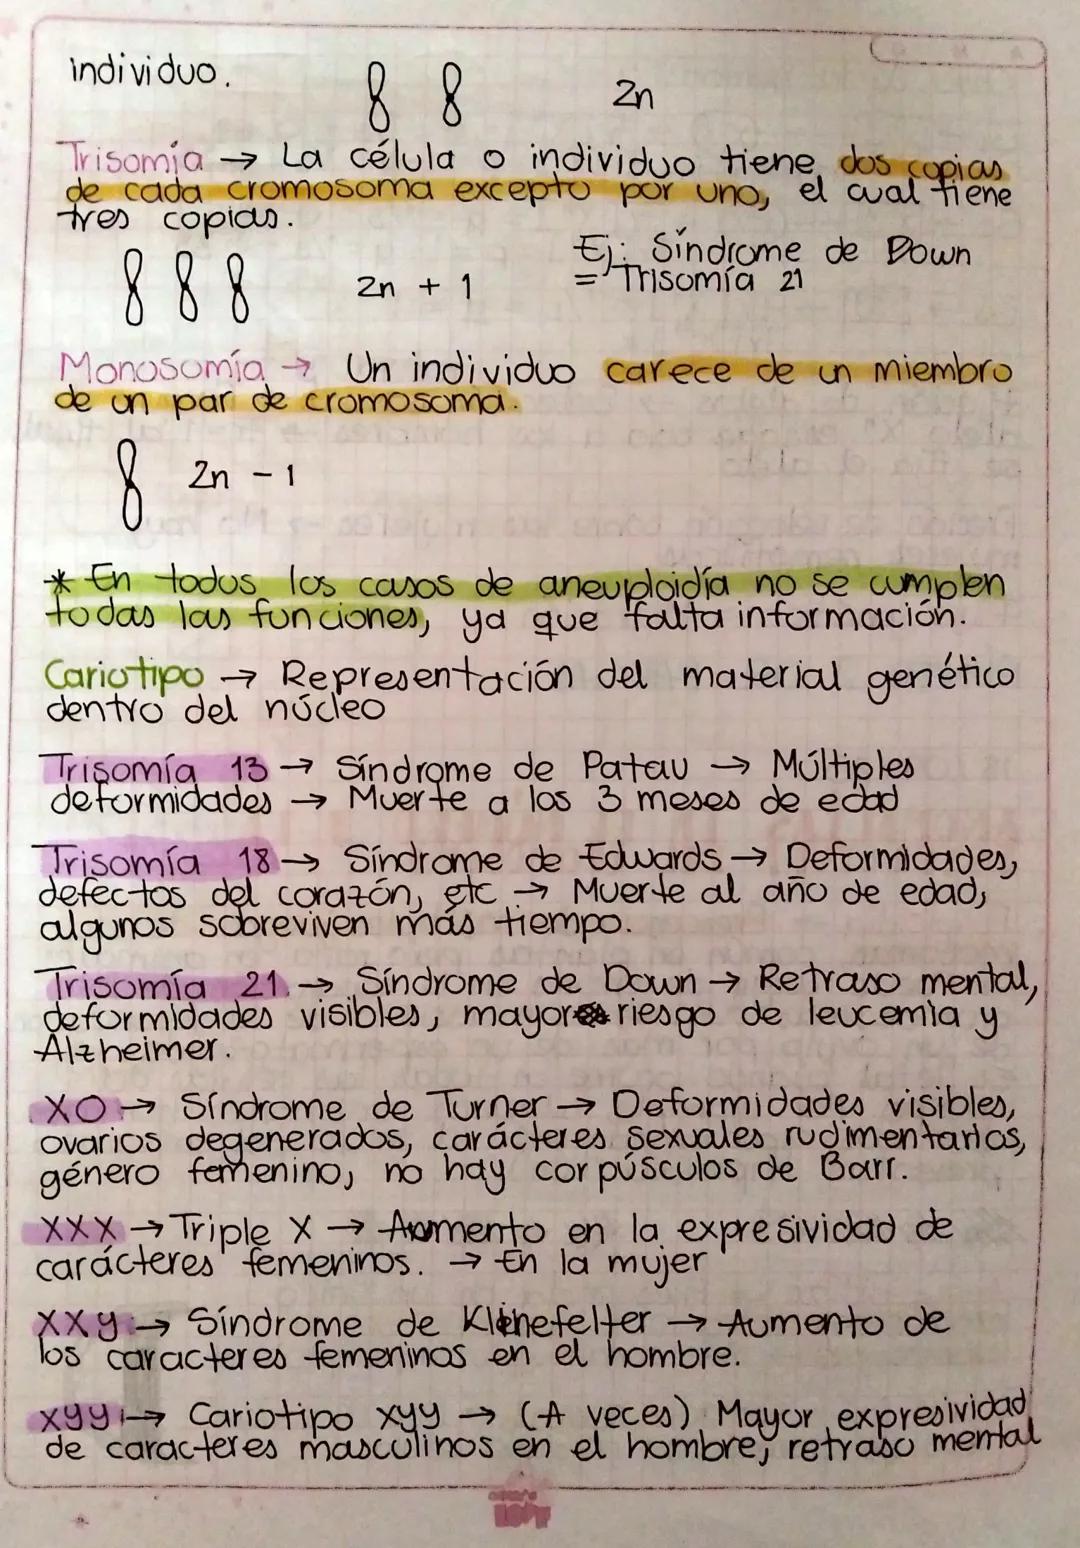 individuo.
2n
Trisomía → La célula o individuo tiene dos copias
de cada cromosoma excepto por uno, el cual tiene
tres copias.
Ej: Síndrome de Down
= Trisomía 21
2n + 1
Monosomía → Un individuo carece de un miembro
de un par de cromosoma.
2n - 1
* En todos los casos de aneuploidía no se cumplen
todas las funciones, ya que falta información.
Cariotipo → Representación del material genético
dentro del núcleo
Trisomía 13 → Síndrome de Patau → Múltiples
deformidades → Muerte a los 3 meses de edad
Trisomía 18 → Síndrome de Edwards → Deformidades,
defectos del corazón, etc → Muerte al año de edad,
algunos sobreviven más tiempo.
Trisomía 21 → Síndrome de Down → Retraso mental,
deformidades visibles, mayor riesgo de leucemia y
Alzheimer.
XO → Síndrome de Turner → Deformidades visibles,
ovarios degenerados, carácteres sexuales rudimentarios,
género femenino, no hay corpúsculos de Barr.
XXX → Triple X → Aumento en la expresividad de
carácteres femeninos. → En la mujer
XXy → Síndrome de Klinefelter → Aumento de
los caracteres femeninos en el hombre.
xyy → Cariotipo xyy → (A veces) Mayor expresividad
de caracteres masculinos en el hombre, retraso mental